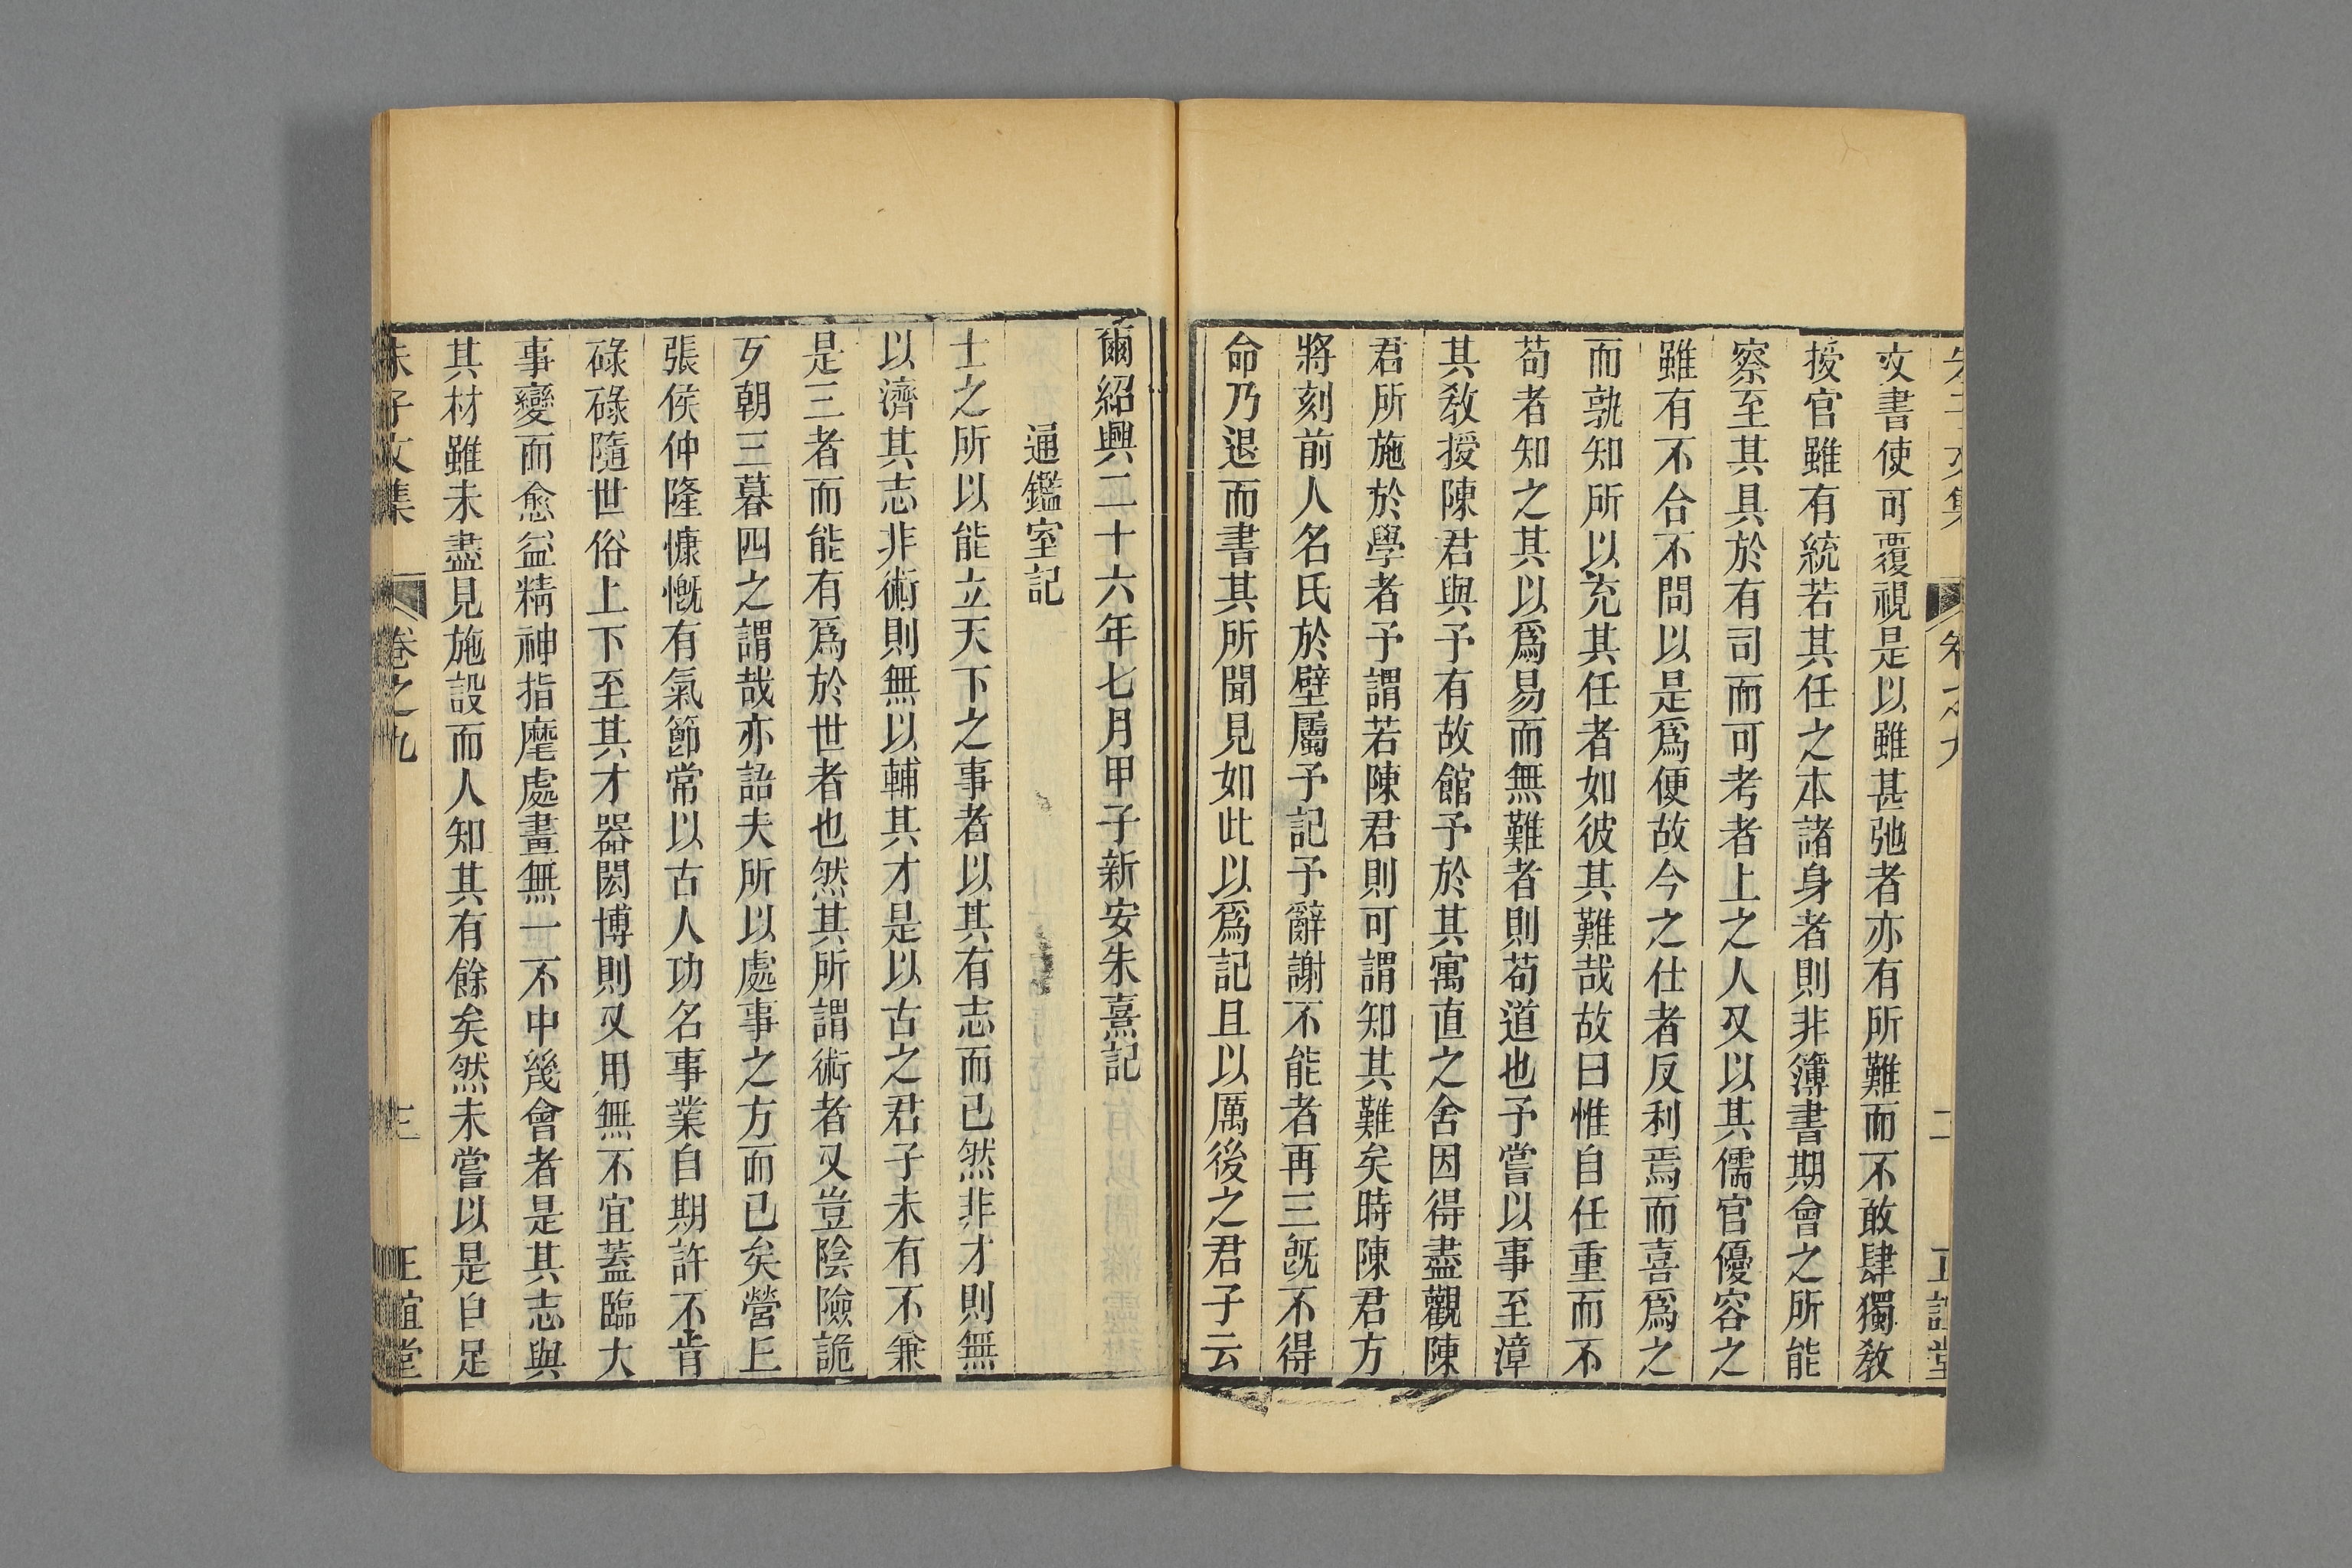 文書使可覆視是以雖甚弛者亦有所難而不敢肆獨教
授官雖有統若其任之本諸身者則非簿書期會之所能
察至其具於有司而可考者上之人又以其儒官優容之
雖有不合不問以是爲便故今之仕者反利焉而喜爲之
而孰知所以充其任者如彼其難哉故曰惟自任重而不
苟者知之其以爲易而無難者則苟道也予嘗以事至漳
其敎授陳君與予有故館予於其寓直之舍因得盡觀陳
君所施於學者予謂若陳君則可謂知其難矣時陳君方
將刻前人名氏於壁屬予記予辭謝不能者再三旣不得
命乃退而書其所聞見如此以爲記且以厲後之君子云
爾紹興二十六年七月甲子新安朱熹記
通鑑室記
士之所以能立天下之事者以其有志而已然非才則無
以濟其志非術則無以輔其才是以古之君子未有不兼
是三者而能有爲於世者也然其所謂術者又豈陰險詭
歹朝三暮四之謂哉亦語夫所以處事之方而已矣營上
張侯仲隆慷慨有氣節常以古人功名事業自期許不肯
碌碌隨世俗上下至其才器閎博則又用無不宜蓋臨大
事變而愈益精神指麾處畫無一不中幾會者是其志與
其材雖未盡見施設而人知其有餘矣然未嘗以是自足
朱子文集 卷之九 三 正誼堂